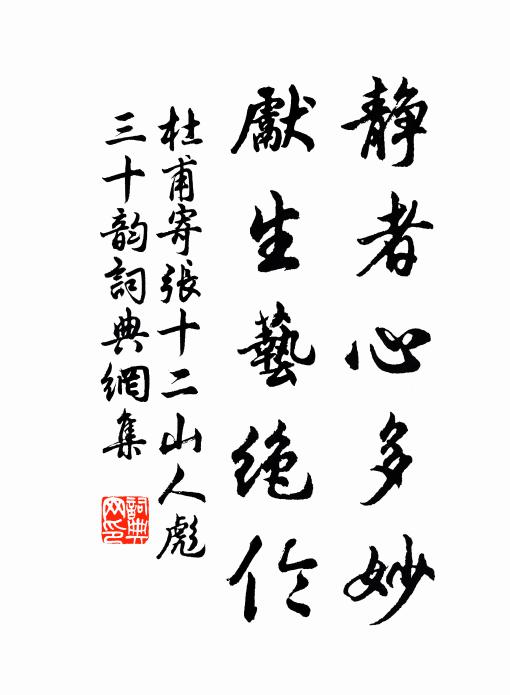 静者心多妙
獻生藝绝伦
杜甫寄張十二山人彪
三十韵詞典網集
詞典
网印